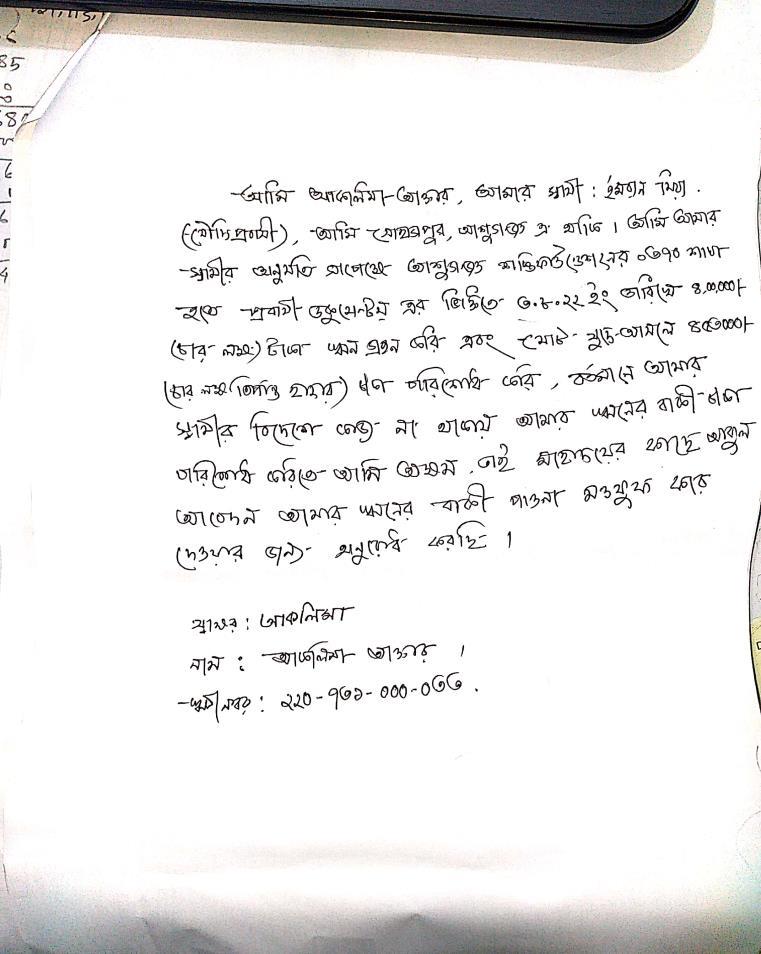 ৪5
আমি আকলিমা আক্তার, আমার স্বামী : ইমরান মিয়া .
(সৌদি প্রবাসী), আমি সোহাগপুর, আশুগঞ্জ এ থাকি । আমি আমার
স্বামীর অনুমতি সাপেক্ষে আশুগঞ্জ শাখার ০৩৭০ শাখা
হতে প্রবাসী ডকুমেন্টস এর ভিত্তিতে ৩.৮.২২ ইং তারিখে ৪,০০,০০০/-
(চার লক্ষ) টাকা ঋন গ্রহন করি এবং মোট সুদে-আসলে ৪৫৩০০০/-
(চার লক্ষ তিপ্পান্ন হাজার) ঋণ পরিশোধ করি , বর্তমানে আমার
স্বামীর বিদেশে কাজ না থাকায় আমার ঋনের বাকী ঋণ
পরিশোধ করিতে আমি অক্ষম . তাই মহোদয়ের কাছে আকুল
আবেদন আমার ঋনের বাকী পাওনা মওকুফ করে
দেওয়ার জন্য অনুরোধ করছি ।
স্বাক্ষর : আকলিমা
নাম : আকলিমা আক্তার ।
ঋণী নম্বর : ২২০-৭৩১-০০০-০৩৩ .